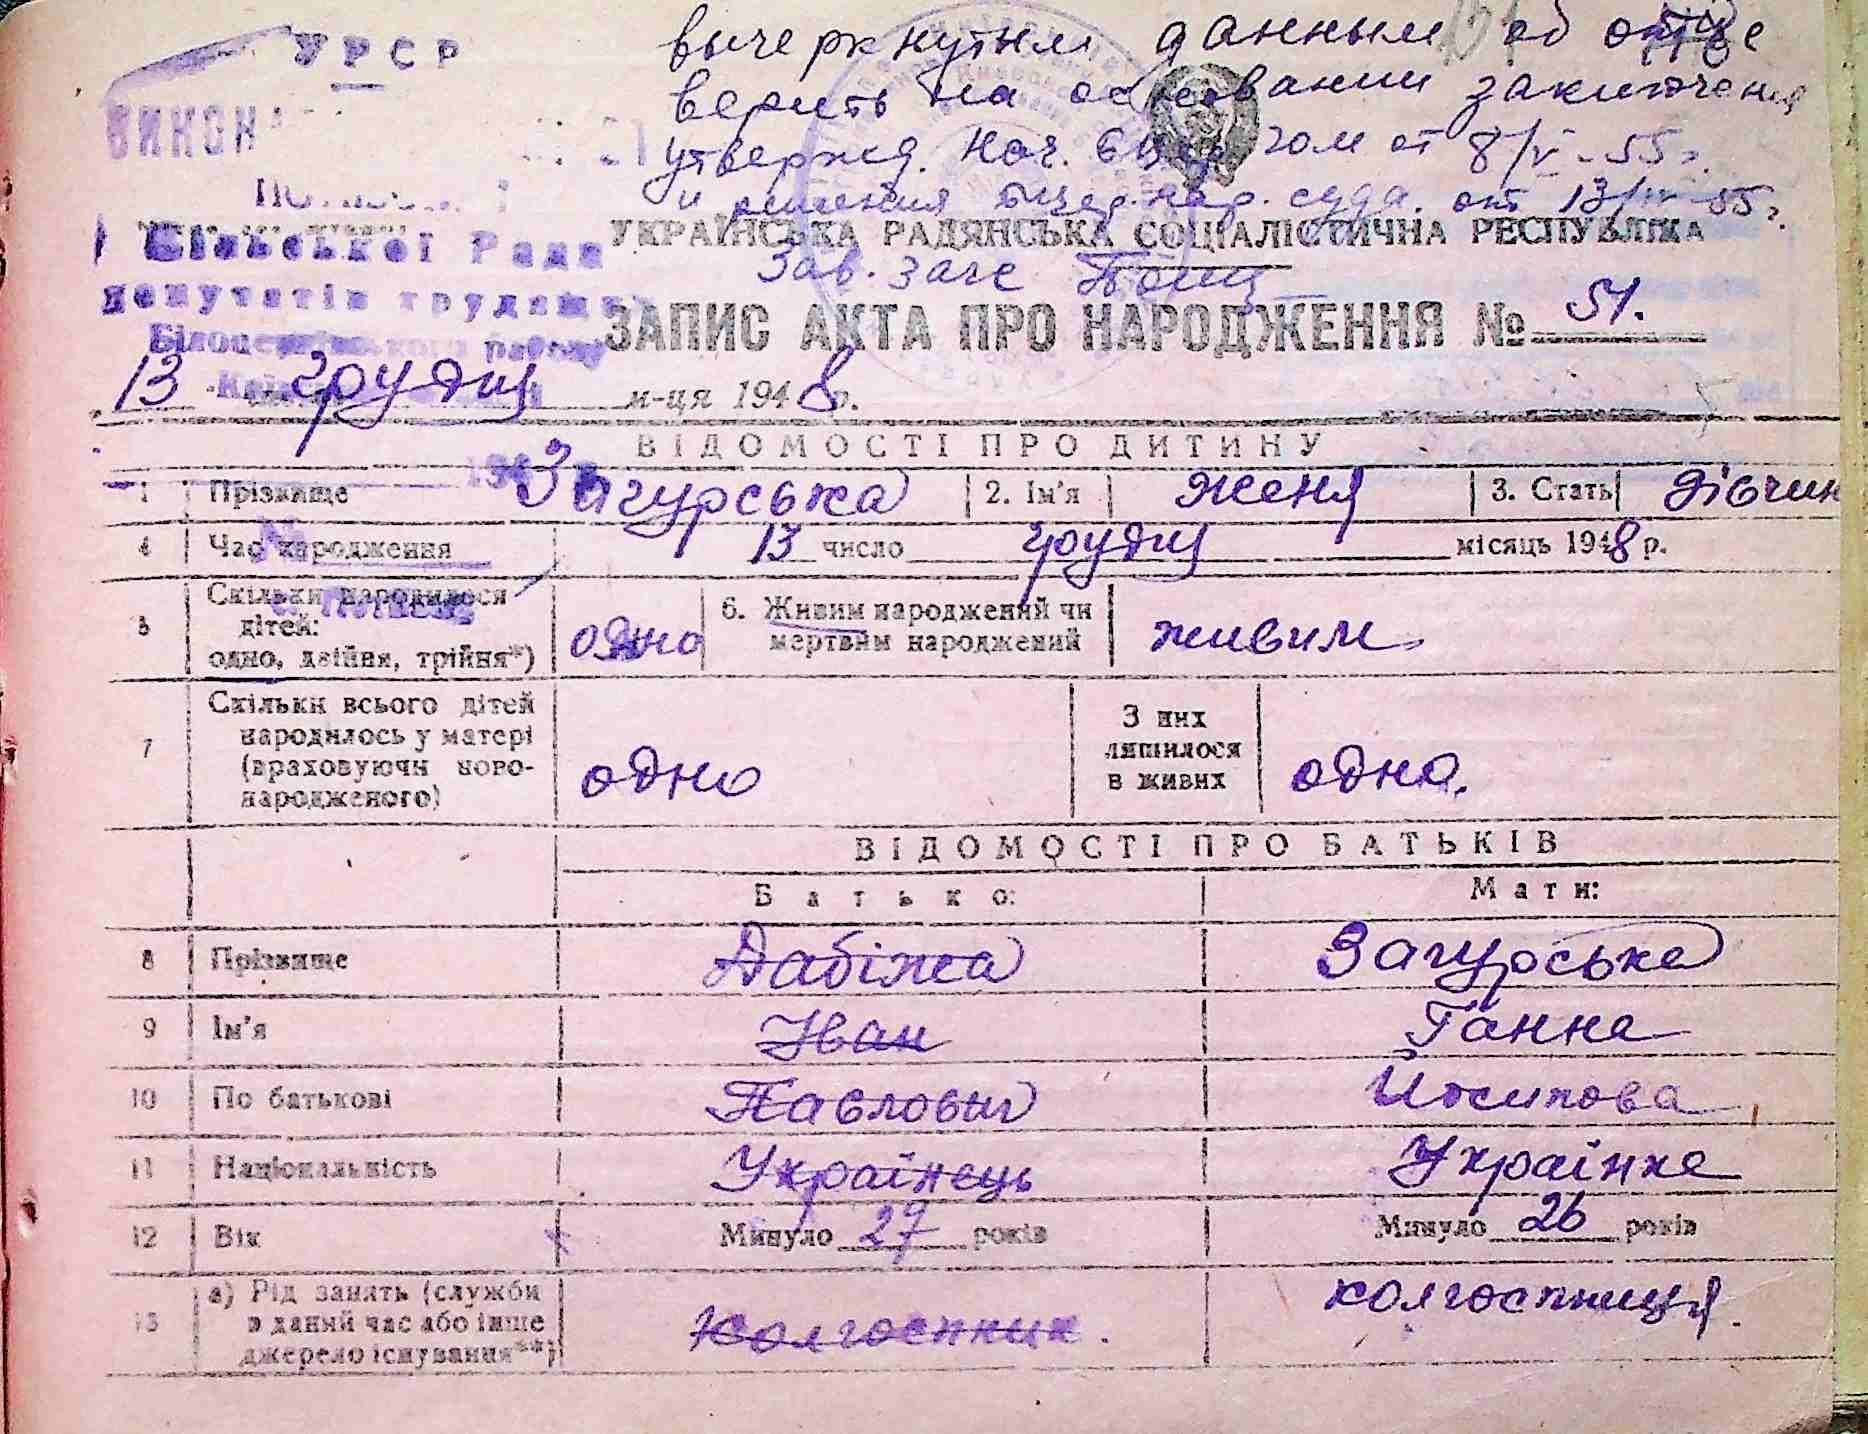 УРСР
вычеркнутым данным об отце
верить на основании заключения
ВИКОН
утвержд. Нач. от 8/V-55г.
и решения нар. суда. от 13/IV-55г.
УКРАЇНСЬКА РАДЯНСЬКА СОЦІАЛІСТИЧНА РЕСПУБЛІКА
Сільської Ради
Зав. загс
депутатів трудящ
ЗАПИС АКТА ПРО НАРОДЖЕННЯ № 51.
Білоцерківського району
13 грудня м-ця 1948 р.
ВІДОМОСТІ ПРО ДИТИНУ
1 Прізвище Загурська 2. Ім'я Женя 3. Стать дівчин
4 Час народження 13 число грудня місяць 1948 р.
5 Скільки народилося дітей: одно, двійня, трійня*) одно 6. Живим народжений чи мертвим народжений живим
7 Скільки всього дітей народилось у матері (враховуючи новонародженого) одно З них лишилося в живих одно.
ВІДОМОСТІ ПРО БАТЬКІВ
Батько: Мати:
8 Прізвище Дабіжа Загурська
9 Ім'я Іван Ганна
10 По батькові Павлович Йосипова
11 Національність Українець Українка
12 Вік Минуло 27 років Минуло 26 років
13 а) Рід занять (служби в даний час або інше джерело існування**) Колгоспник. колгоспниця.